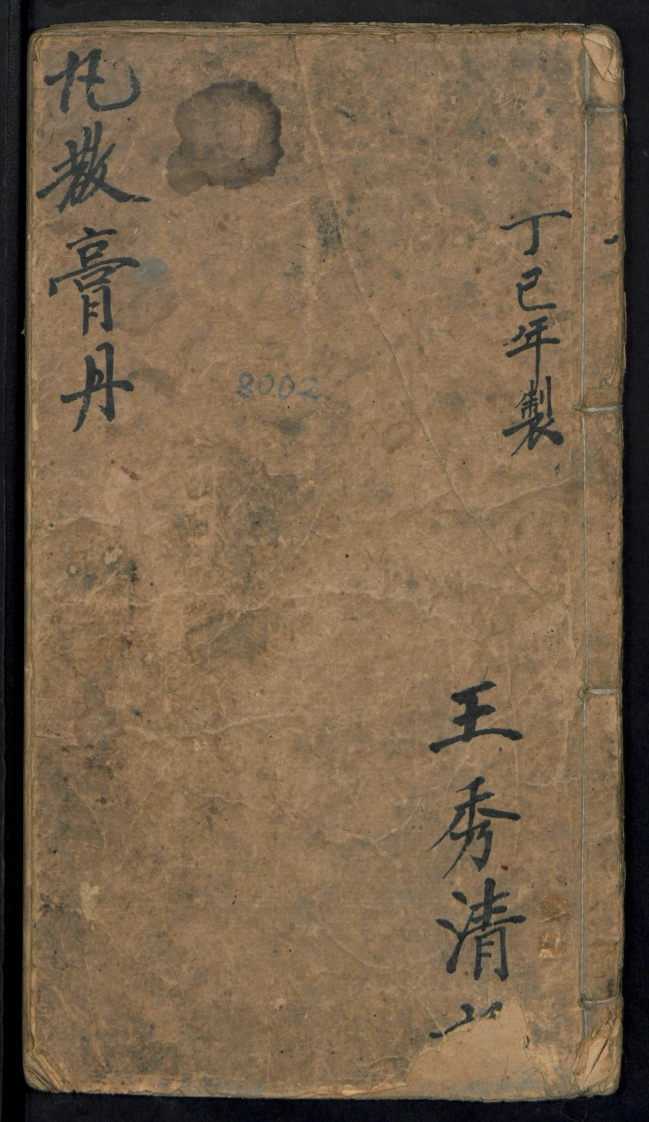 丁巳年製
王秀清
散膏丹
8002